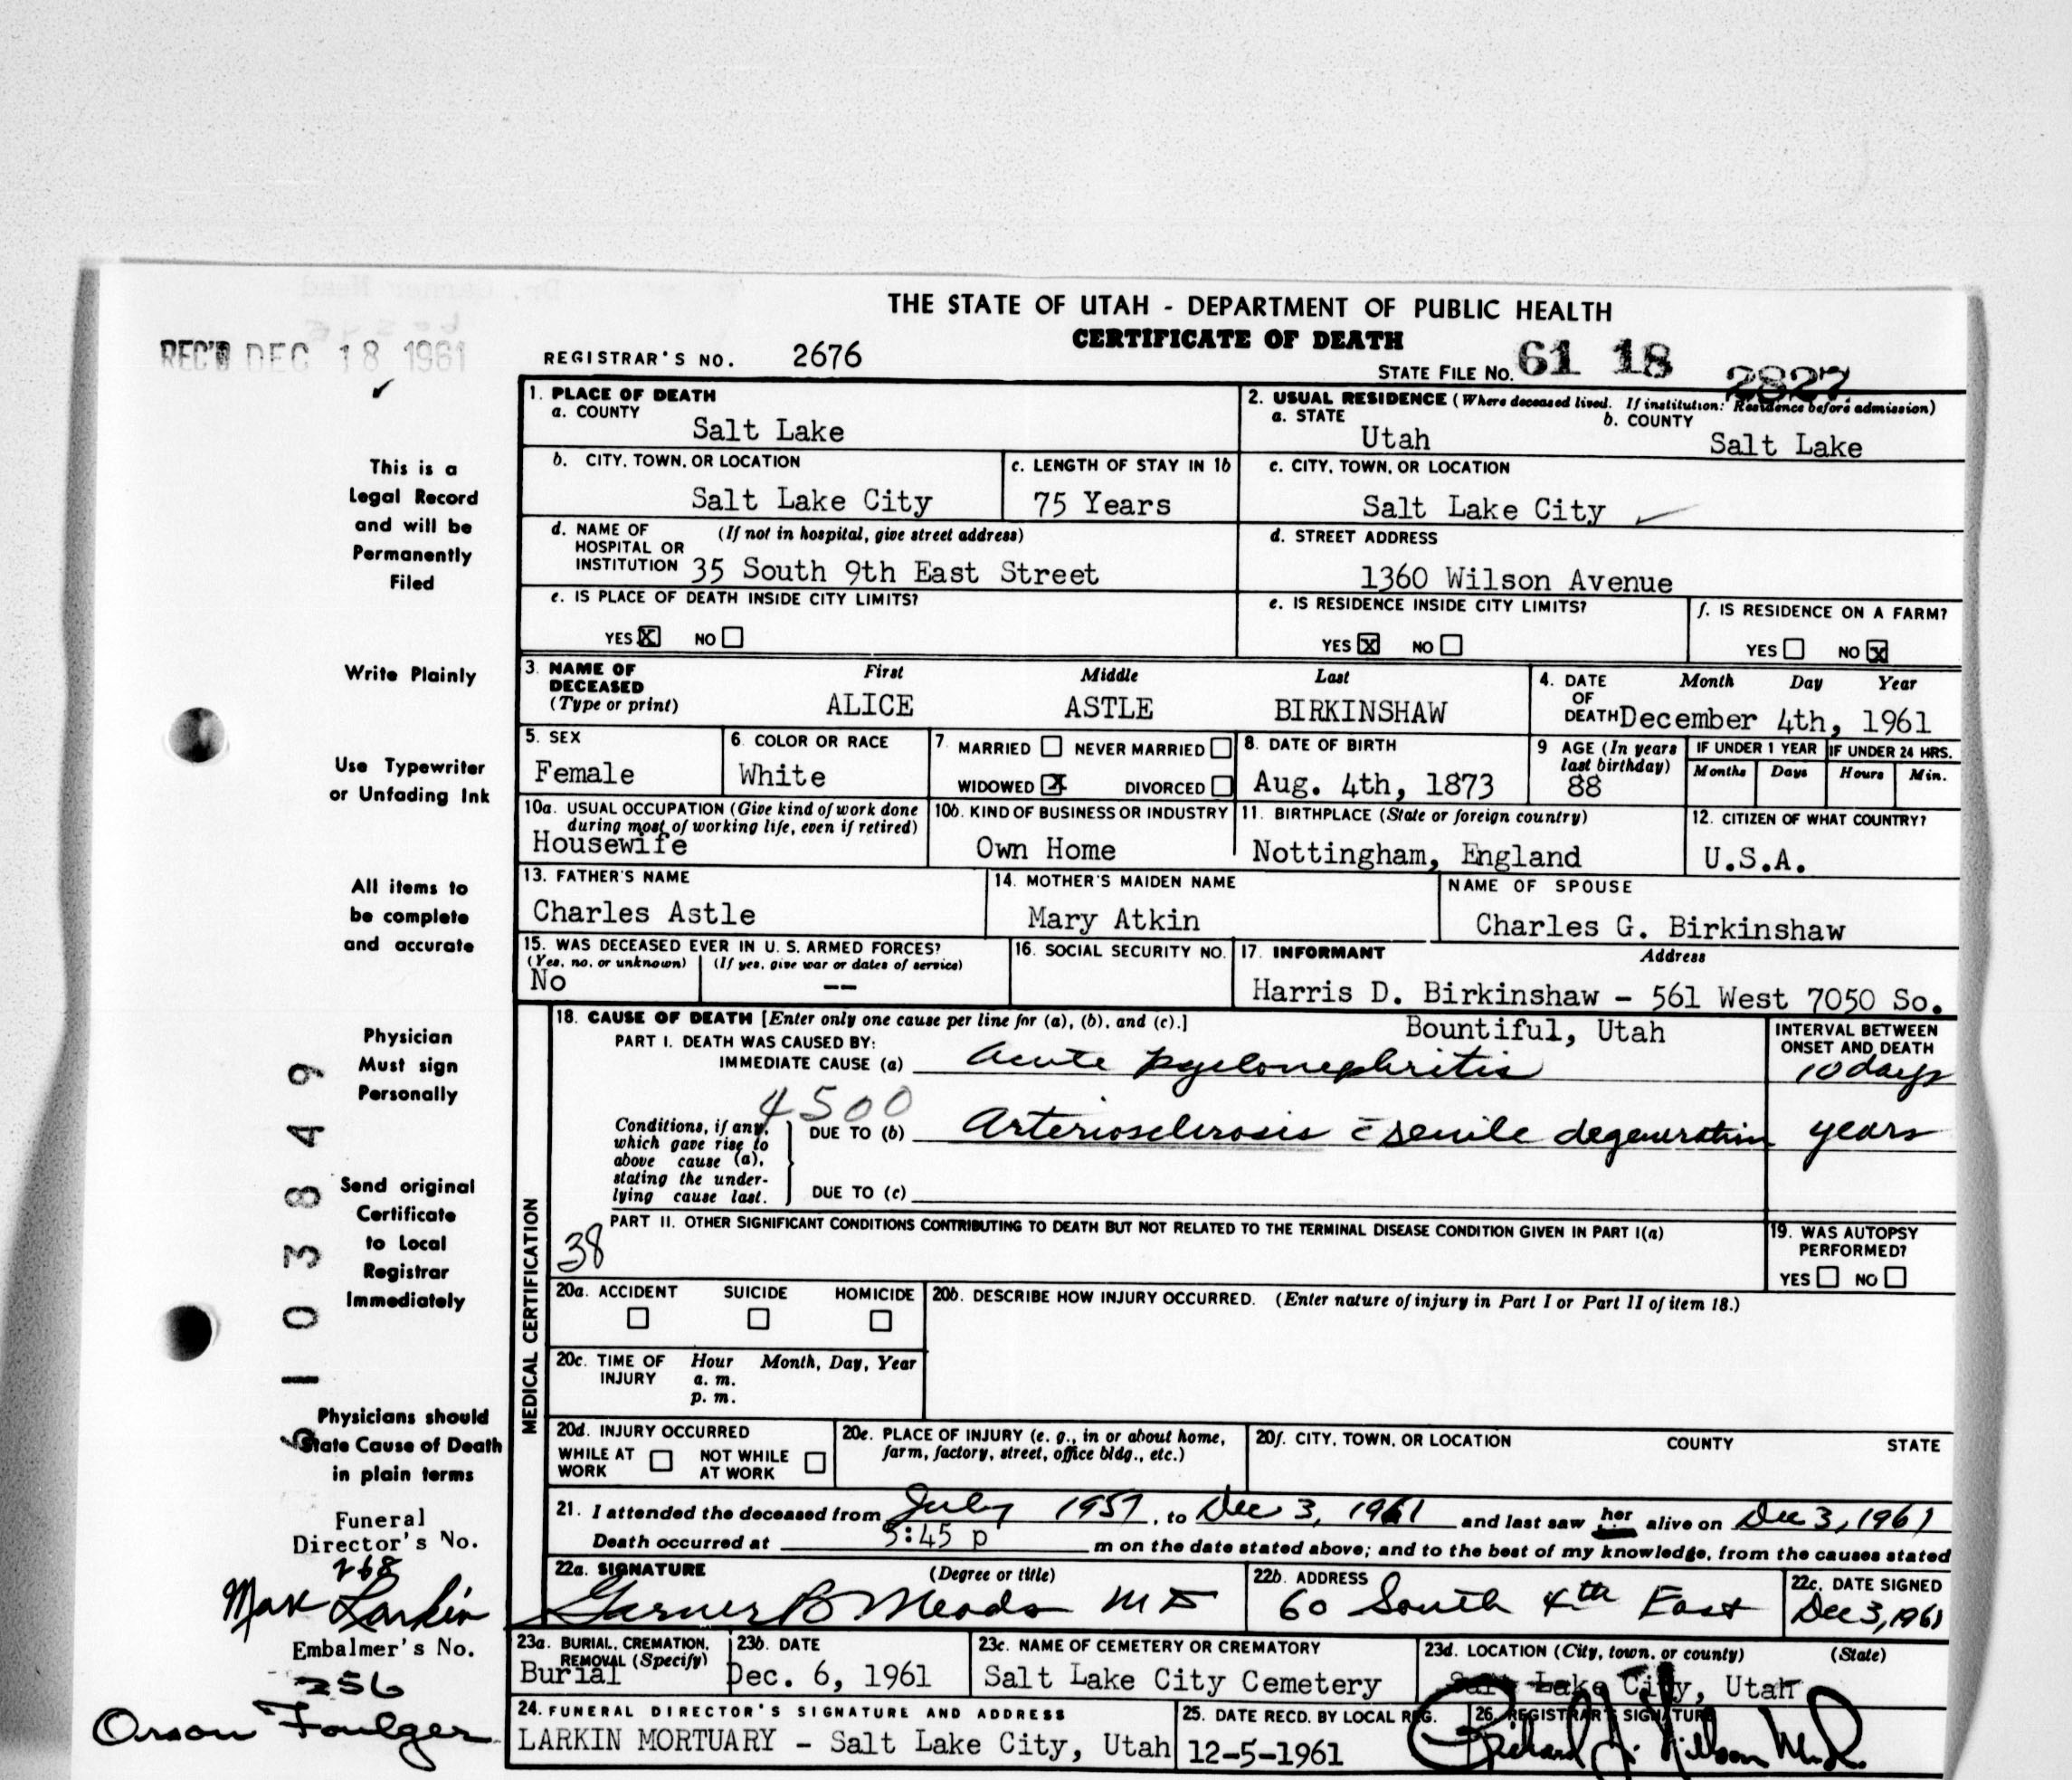 THE STATE OF UTAH - DEPARTMENT OF PUBLIC HEALTH
CERTIFICATE OF DEATH
REC'D DEC 18 1961
REGISTRAR'S NO. 2676
STATE FILE NO. 61 18 2827
1. PLACE OF DEATH
a. COUNTY
Salt Lake
2. USUAL RESIDENCE (Where deceased lived. If institution: Residence before admission)
a. STATE
Utah
b. COUNTY
Salt Lake
b. CITY, TOWN, OR LOCATION
Salt Lake City
c. LENGTH OF STAY IN 1b
75 Years
c. CITY, TOWN, OR LOCATION
Salt Lake City
d. NAME OF HOSPITAL OR INSTITUTION
(If not in hospital, give street address)
35 South 9th East Street
d. STREET ADDRESS
1360 Wilson Avenue
e. IS PLACE OF DEATH INSIDE CITY LIMITS?
YES X NO
e. IS RESIDENCE INSIDE CITY LIMITS?
YES X NO
f. IS RESIDENCE ON A FARM?
YES NO X
3. NAME OF DECEASED
(Type or print)
First Middle Last
ALICE ASTLE BIRKINSHAW
4. DATE OF DEATH
Month Day Year
December 4th, 1961
5. SEX
Female
6. COLOR OR RACE
White
7. MARRIED NEVER MARRIED
WIDOWED X DIVORCED
8. DATE OF BIRTH
Aug. 4th, 1873
9 AGE (In years last birthday)
88
IF UNDER 1 YEAR
Months Days
IF UNDER 24 HRS.
Hours Min.
10a. USUAL OCCUPATION (Give kind of work done during most of working life, even if retired)
Housewife
10b. KIND OF BUSINESS OR INDUSTRY
Own Home
11. BIRTHPLACE (State or foreign country)
Nottingham, England
12. CITIZEN OF WHAT COUNTRY?
U.S.A.
13. FATHER'S NAME
Charles Astle
14. MOTHER'S MAIDEN NAME
Mary Atkin
NAME OF SPOUSE
Charles G. Birkinshaw
15. WAS DECEASED EVER IN U. S. ARMED FORCES?
(Yes, no, or unknown) (If yes, give war or dates of service)
No --
16. SOCIAL SECURITY NO.
17. INFORMANT Address
Harris D. Birkinshaw - 561 West 7050 So.
Bountiful, Utah
18. CAUSE OF DEATH [Enter only one cause per line for (a), (b), and (c).]
PART I. DEATH WAS CAUSED BY:
IMMEDIATE CAUSE (a) Acute pyelonephritis
INTERVAL BETWEEN ONSET AND DEATH
10 days
4500
Conditions, if any, which gave rise to above cause (a), stating the underlying cause last.
DUE TO (b) Arteriosclerosis c̄ senile degeneration years
DUE TO (c)
PART II. OTHER SIGNIFICANT CONDITIONS CONTRIBUTING TO DEATH BUT NOT RELATED TO THE TERMINAL DISEASE CONDITION GIVEN IN PART I(a)
38
19. WAS AUTOPSY PERFORMED?
YES NO
20a. ACCIDENT SUICIDE HOMICIDE
20b. DESCRIBE HOW INJURY OCCURRED. (Enter nature of injury in Part I or Part II of item 18.)
20c. TIME OF INJURY
Hour Month, Day, Year
a. m.
p. m.
20d. INJURY OCCURRED
WHILE AT WORK NOT WHILE AT WORK
20e. PLACE OF INJURY (e. g., in or about home, farm, factory, street, office bldg., etc.)
20f. CITY, TOWN, OR LOCATION COUNTY STATE
21. I attended the deceased from July 1957, to Dec 3, 1961 and last saw her alive on Dec 3, 1961
Death occurred at 5:45 p m on the date stated above; and to the best of my knowledge, from the causes stated
22a. SIGNATURE (Degree or title)
Garner B Meads MD
22b. ADDRESS
60 South 4th East
22c. DATE SIGNED
Dec 3, 1961
23a. BURIAL, CREMATION, REMOVAL (Specify)
Burial
23b. DATE
Dec. 6, 1961
23c. NAME OF CEMETERY OR CREMATORY
Salt Lake City Cemetery
23d. LOCATION (City, town, or county) (State)
Salt Lake City, Utah
24. FUNERAL DIRECTOR'S SIGNATURE AND ADDRESS
LARKIN MORTUARY - Salt Lake City, Utah
25. DATE RECD. BY LOCAL REG.
12-5-1961
26. REGISTRAR'S SIGNATURE
Richard J. Nelson M.D.
MEDICAL CERTIFICATION
This is a
Legal Record
and will be
Permanently
Filed
Write Plainly
Use Typewriter
or Unfading Ink
All items to
be complete
and accurate
Physician
Must sign
Personally
Send original
Certificate
to Local
Registrar
Immediately
Physicians should
State Cause of Death
in plain terms
Funeral
Director's No.
268
Mark Larkin
Embalmer's No.
256
Orson Foulger